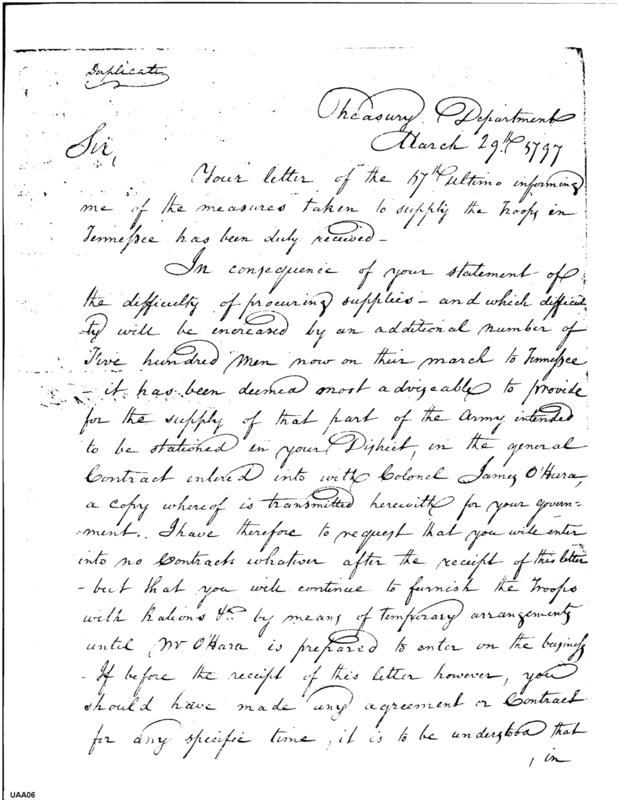 Duplicate
Treasury Department
March 29th 1797
Sir,
Your letter of the 17th Ultimo informing
me of the measures taken to supply the Troops in
Tennessee has been duly received -
In consequence of your statement of
the difficulty of procuring supplies - and which difficul
-ty will be encreased by an additional number of
Five hundred Men now on their march to Tennessee
- it has been deemed most adviseable to provide
for the supply of that part of the Army intended
to be stationed in your District, in the general
Contract entered into with Colonel James O'Hara,
a copy whereof is transmitted herewith for your govern=
-ment. I have therefore to request that you will enter
into no Contracts whatever after the receipt of this letter
- but that you will continue to furnish the Troops
with Rations &ca by means of temporary arrangements
until Mr O'Hara is prepared to enter on the business
- If before the receipt of this letter however, you
should have made any agreement or Contract
for any specific time, it is to be understood that
, in
UAA06